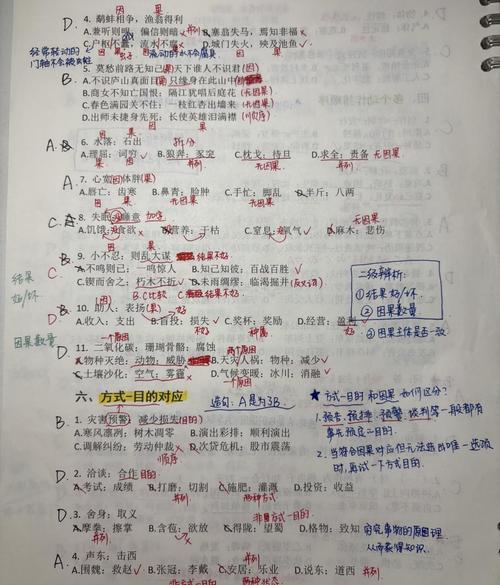 因 果
D. 4. 鹬蚌相争，渔翁得利
A.兼听则明 偏信则暗 并列 B.塞翁失马，焉知非福
C.户枢不蠹，流水不腐 D.城门失火，殃及池鱼
经常转动的
门轴不会被虫蛀
5. 莫愁前路无知己 天下谁人不识君(因)
A.不识庐山真面目(果) 只缘身在此山中(因)
B.商女不知亡国恨；隔江犹唱后庭花 无因果
C.春色满园关不住；一枝红杏出墙来
D.出师未捷身先死；长使英雄泪满襟 (顺序)
因 果
A. 6. 水落：石出 拆分
A.理屈：词穷 B.狼奔：豕突 C.枕戈：待旦 D.求全：责备 无因果
并列 无因果
A. 7. 心宽(因)体胖(果)
A.唇亡：齿寒 B.鼻青：脸肿 C.手忙：脚乱 D.半斤：八两
因 果 无因果 无因果
C. 8. 失眠 睡意
A.饥饿 食欲 B.营养：干枯 C.窒息 氧气 D.麻木：悲伤
无因果
B. 9. 小不忍：则乱大谋
A.不鸣则已：一鸣惊人 B.知己知彼：百战百胜
C. C.锲而舍之：朽木不折 D.防微杜渐：临渴掘井(反义词)
B.C比较 C.因果结果不好
结果
好/坏
D. 10. 助人：表扬(果) 好
A.收入：支出 B.盲投：损失 结果不好 C.奖杯：奖励 D.经营：盈利
并列 种属
因果数量
二级辨析：
①结果好/坏
②因果数量
③因果主体是否一致
D. 11. 二氧化碳：珊瑚骨骼：腐蚀
一个原因 两个原因
A.物种灭绝：动物：威胁 B.天灾人祸：物种：减少
C.土壤沙化：空气：雾霾 D.气候变暖：冰川：消融
一个原因
六、方式-目的对应
造句：A是为了B
B. 1. 灾害预警 减少损失(目的)
A.寒风凛冽：树木凋零 B.演出彩排：顺利演出
C.调解纠纷：劳动仲裁 D.次贷危机：股市震荡
顺序
★方式-目的和因果如何区分？
1. 预告、预排、预警、谈判等一般都有
事先预良一目的.
2. 当符合因果对应但无法选出唯一选项
时，再试一下方式目的.
D. 2. 洽谈：合作 目的
A.考试：成绩 B.打磨：切割 C.施肥：灌溉 D.投资：收益
并列 两种方式
D. 3. 舍身：取义
非方式-目的
A.摩拳：擦掌 B.含苞：欲放 C.得陇：望蜀 D.格物：致知
并列
穷究事物的原因理
从而获得知识.
A. 4. 声东：击西
A.围魏：救赵 B.张冠：李戴 C.安居：乐业 D.说东：道西 并列
非方式-目的 两种状态